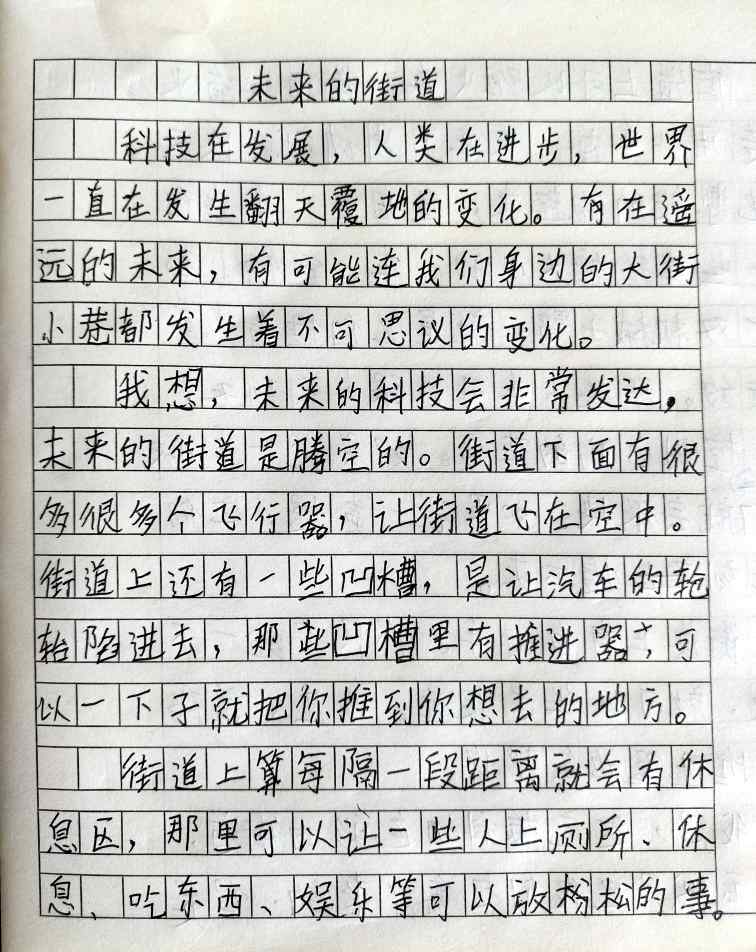 未来的街道
科技在发展，人类在进步，世界
一直在发生翻天覆地的变化。有在遥
远的未来，有可能连我们身边的大街
小巷都发生着不可思议的变化。
我想，未来的科技会非常发达，
未来的街道是腾空的。街道下面有很
多很多个飞行器，让街道飞在空中。
街道上还有一些凹槽，是让汽车的轮
胎陷进去，那些凹槽里有推进器，可
以一下子就把你推到你想去的地方。
街道上算每隔一段距离就会有休
息区，那里可以让一些人上厕所、休
息、吃东西、娱乐等可以放松的事。